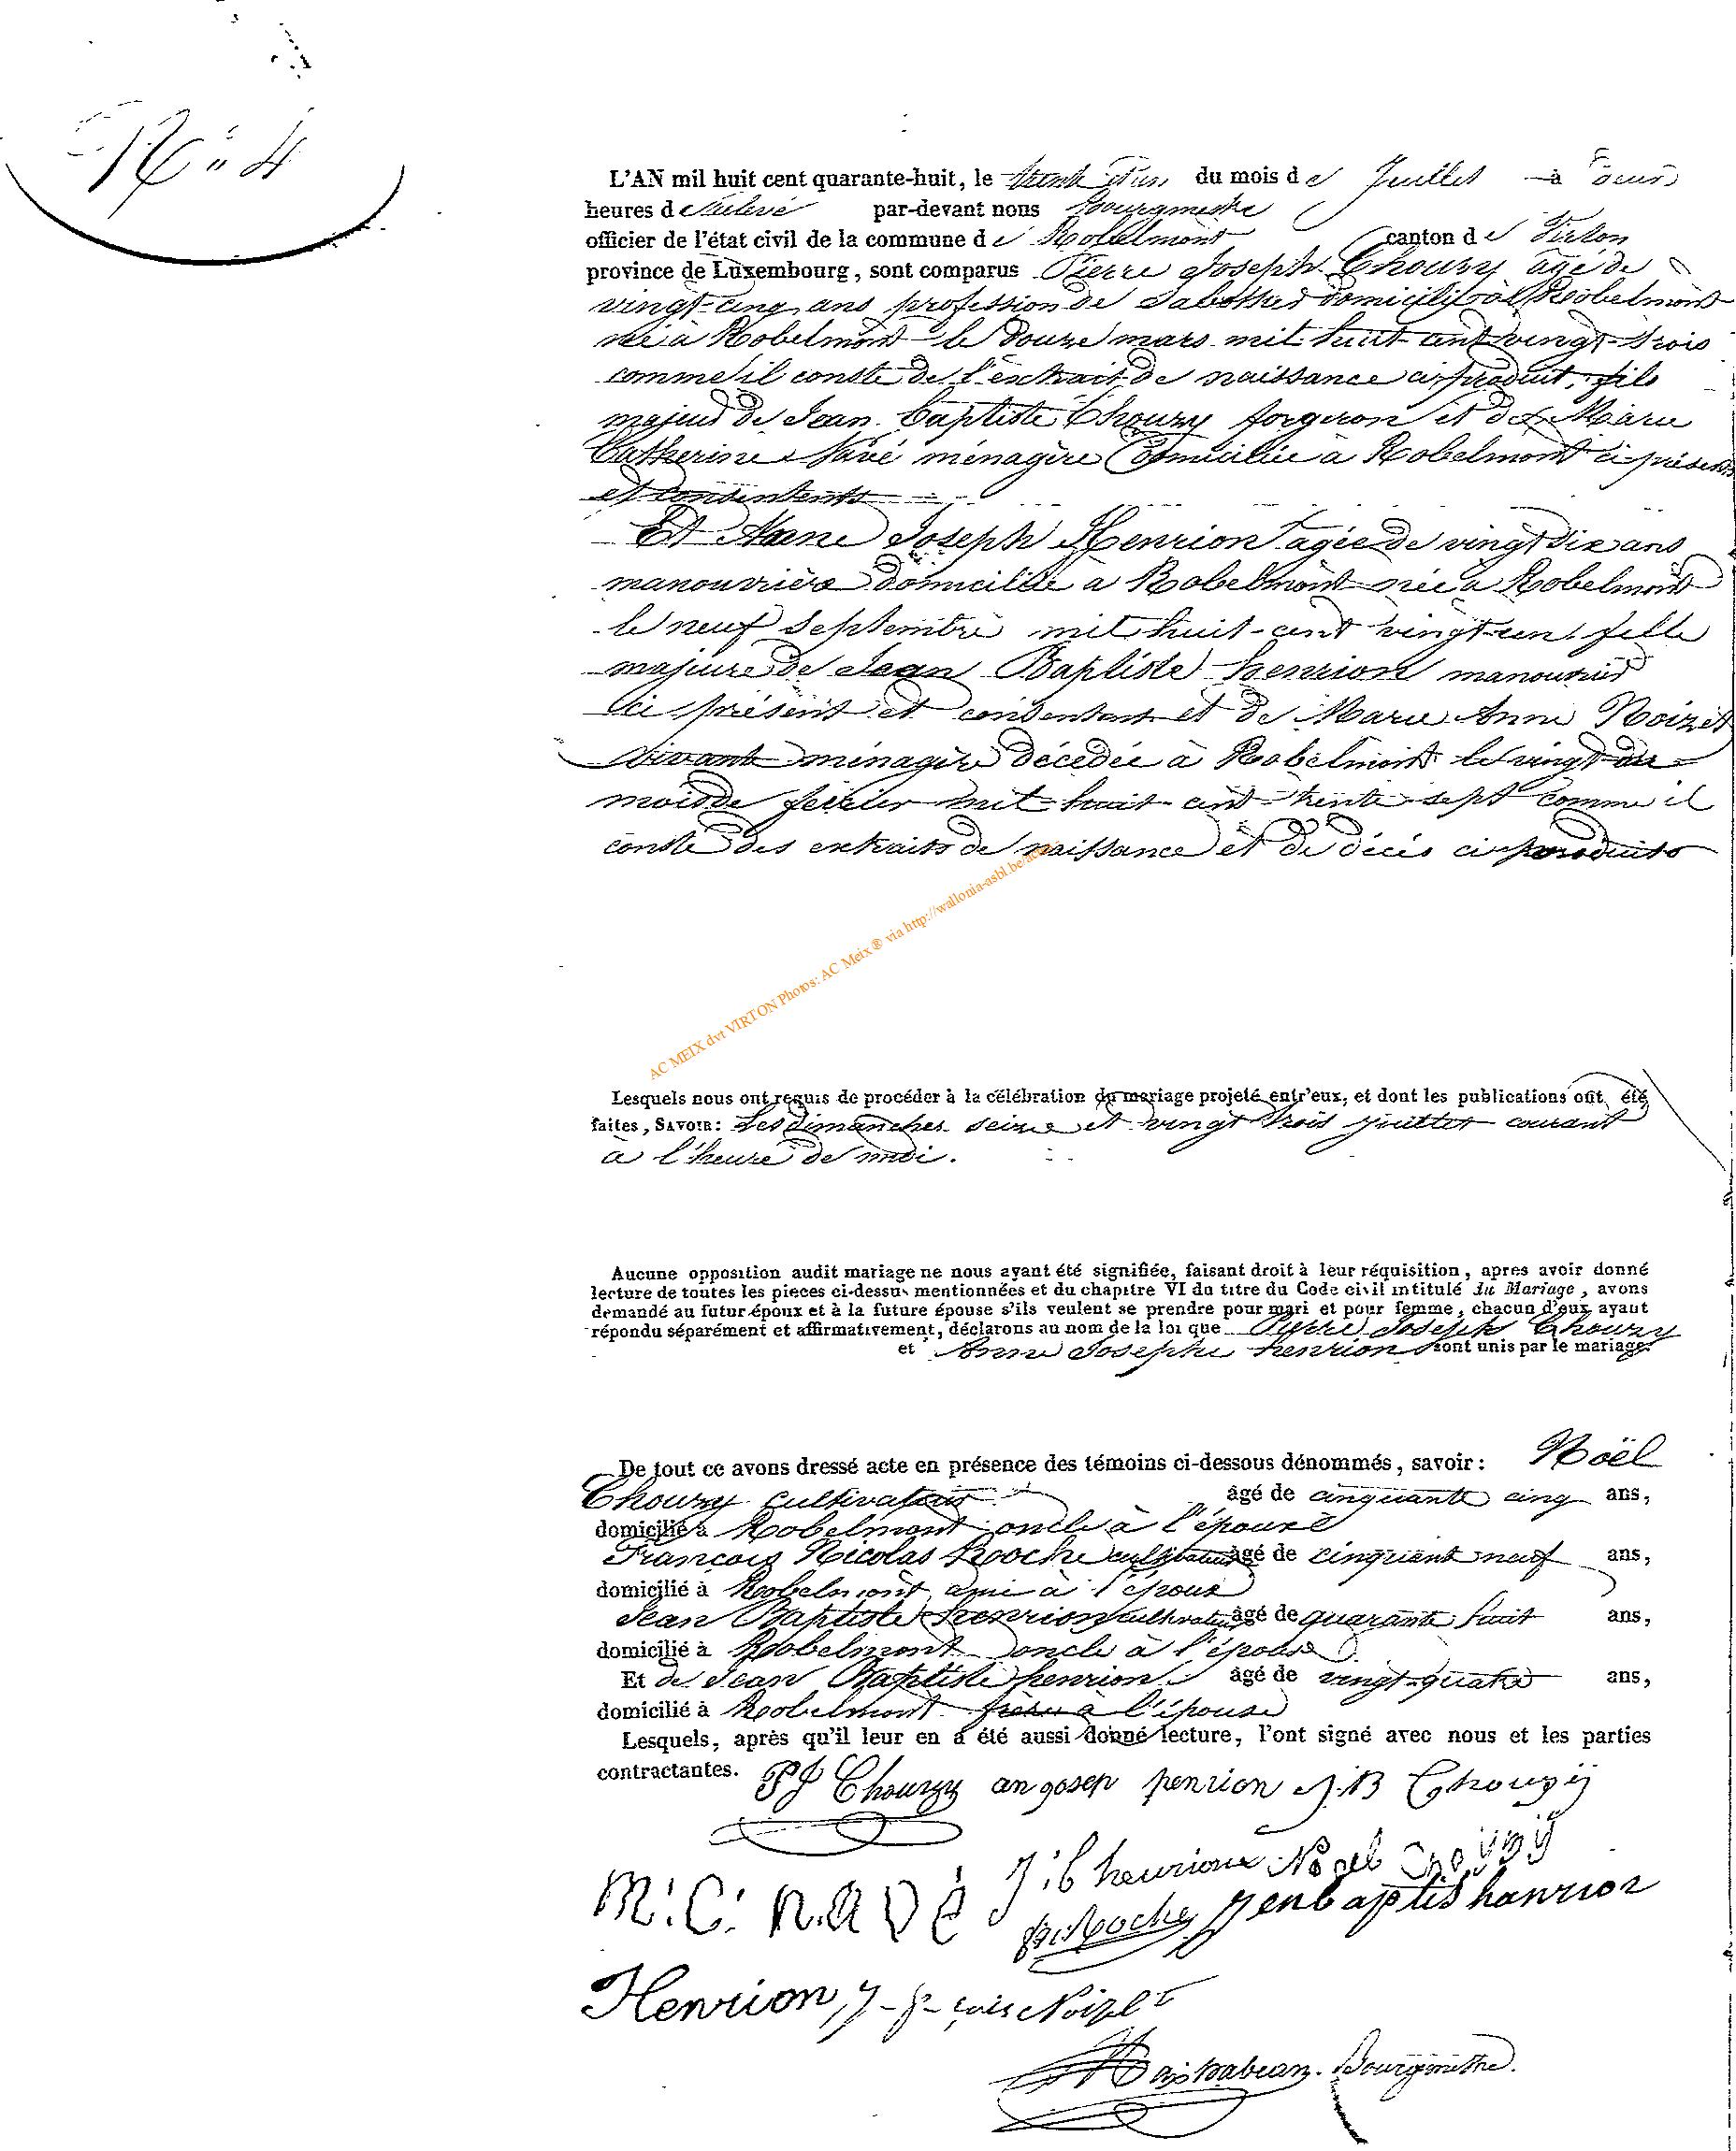 N° 4
L'AN mil huit cent quarante-huit, le trente et un du mois de Juillet à
heures de par-devant nous Bourgmestre
officier de l'état civil de la commune de Robelmont canton de Virton
province de Luxembourg, sont comparus Pierre Joseph Chouzy agé de
vingt-cinq ans profession de Sabottier domicilié à Robelmont
né à Robelmont le douze mars mil huit cent vingt-trois
comme il conste de l'extrait de naissance ci produit, fils
majeur de Jean Baptiste Chouzy forgeron et de Marie
Catherine Navé ménagère domiciliée à Robelmont ci présents
et consentents
Et Anne Joseph Henrion agée de vingt six ans
manouvrière domiciliée à Robelmont née à Robelmont
le neuf Septembre mil huit-cent vingt-un, fille
majeure de Jean Baptiste henrion manouvrier
ici présent et consentant et de Marie Anne Noizet
vivant ménagère décédée à Robelmont le vingt du
mois de fevrier mil huit cent trente-sept comme il
conste des extraits de naissance et de décès ci produits
AC MEIX dvt VIRTON Photos: AC Meix ® via http://wallonia-asbl.be/
Lesquels nous ont requis de procéder à la célébration du mariage projeté entr'eux, et dont les publications ont été
faites, SAVOIR: Les dimanches seize et vingt trois juillet courant
à l'heure de midi.
Aucune opposition audit mariage ne nous ayant été signifiée, faisant droit à leur réquisition, apres avoir donné
lecture de toutes les pieces ci-dessus mentionnées et du chapitre VI du titre du Code civil intitulé du Mariage, avons
demandé au futur époux et à la future épouse s'ils veulent se prendre pour mari et pour femme, chacun d'eux ayant
répondu séparément et affirmativement, déclarons au nom de la loi que Pierre Joseph Chouzy
et Anne Josephe henrion sont unis par le mariage.
De tout ce avons dressé acte en présence des témoins ci-dessous dénommés, savoir: Noël
Chouzy cultivateur âgé de cinquante cinq ans,
domicilié à Robelmont oncle à l'époux
François Nicolas Roche cultivateur âgé de cinquant neuf ans,
domicilié à Robelmont ami à l'époux
Jean Baptiste henrion cultivateur âgé de quarante huit ans,
domicilié à Robelmont oncle à l'épouse
Et de Jean Baptiste henrion âgé de vingt-quatre ans,
domicilié à Robelmont frère à l'épouse
Lesquels, après qu'il leur en a été aussi donné lecture, l'ont signé avec nous et les parties
contractantes. PJ Chouzy an gosep henrion J.B Chouzy
M. C. NAVÉ J.b henrion Noel Chouzy
Roche Jenbaptis hanrion
Henrion J-F-çois Noizet
Bourgmestre.